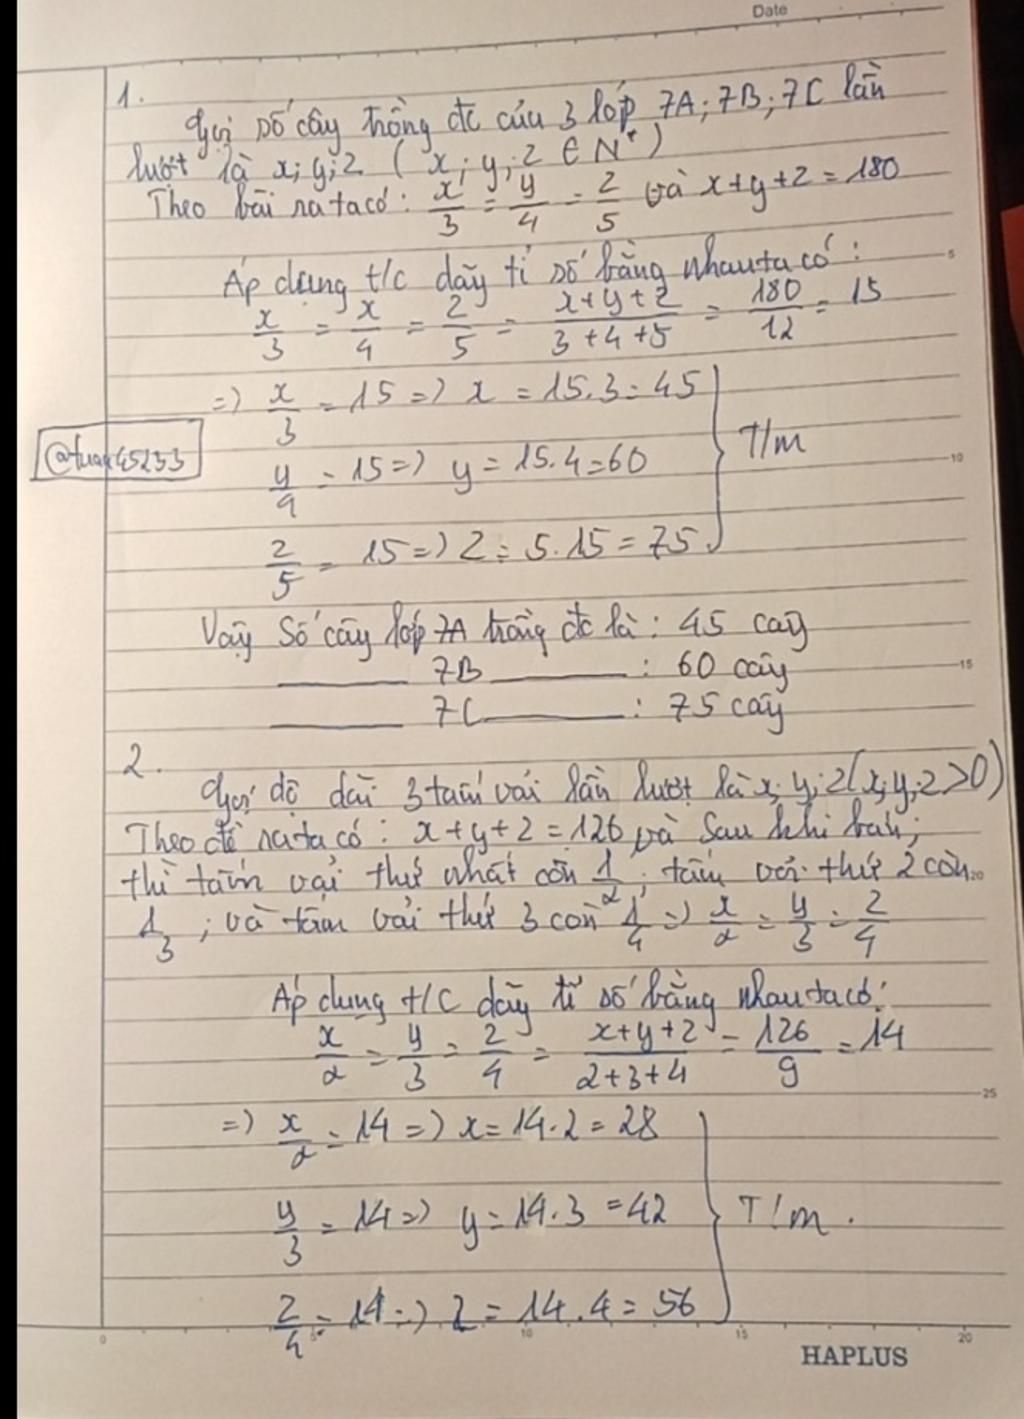 Date
1.
Gọi số cây trồng đc của 3 lớp 7A; 7B; 7C lần
lượt là x; y; z ( x; y; z ∈ N* )
Theo bài ra ta có: x/3 = y/4 = z/5 và x+y+z = 180
Áp dụng t/c dãy tỉ số bằng nhau ta có:
x/3 = x/4 = z/5 = (x+y+z)/(3+4+5) = 180/12 = 15
=> x/3 = 15 => x = 15.3 = 45
@tuan45233
T/m
y/4 = 15 => y = 15.4 = 60
z/5 = 15 => z = 5.15 = 75
Vậy Số cây lớp 7A trồng đc là: 45 cây
7B : 60 cây
7C : 75 cây
2.
Gọi độ dài 3 tấm vải lần lượt là x; y; z (x; y; z > 0)
Theo đề ra ta có: x+y+z = 126 và sau khi bán;
thì tấm vải thứ nhất còn 1/2; tấm vải thứ 2 còn
1/3; và tấm vải thứ 3 còn 1/4 => x/2 = y/3 = z/4
Áp dụng t/c dãy tỉ số bằng nhau ta có:
x/2 = y/3 = z/4 = (x+y+z)/(2+3+4) = 126/9 = 14
=> x/2 = 14 => x = 14.2 = 28
y/3 = 14 => y = 14.3 = 42
T/m.
z/4 = 14 => z = 14.4 = 56
5
10
15
20
25
0
5
10
15
20
HAPLUS